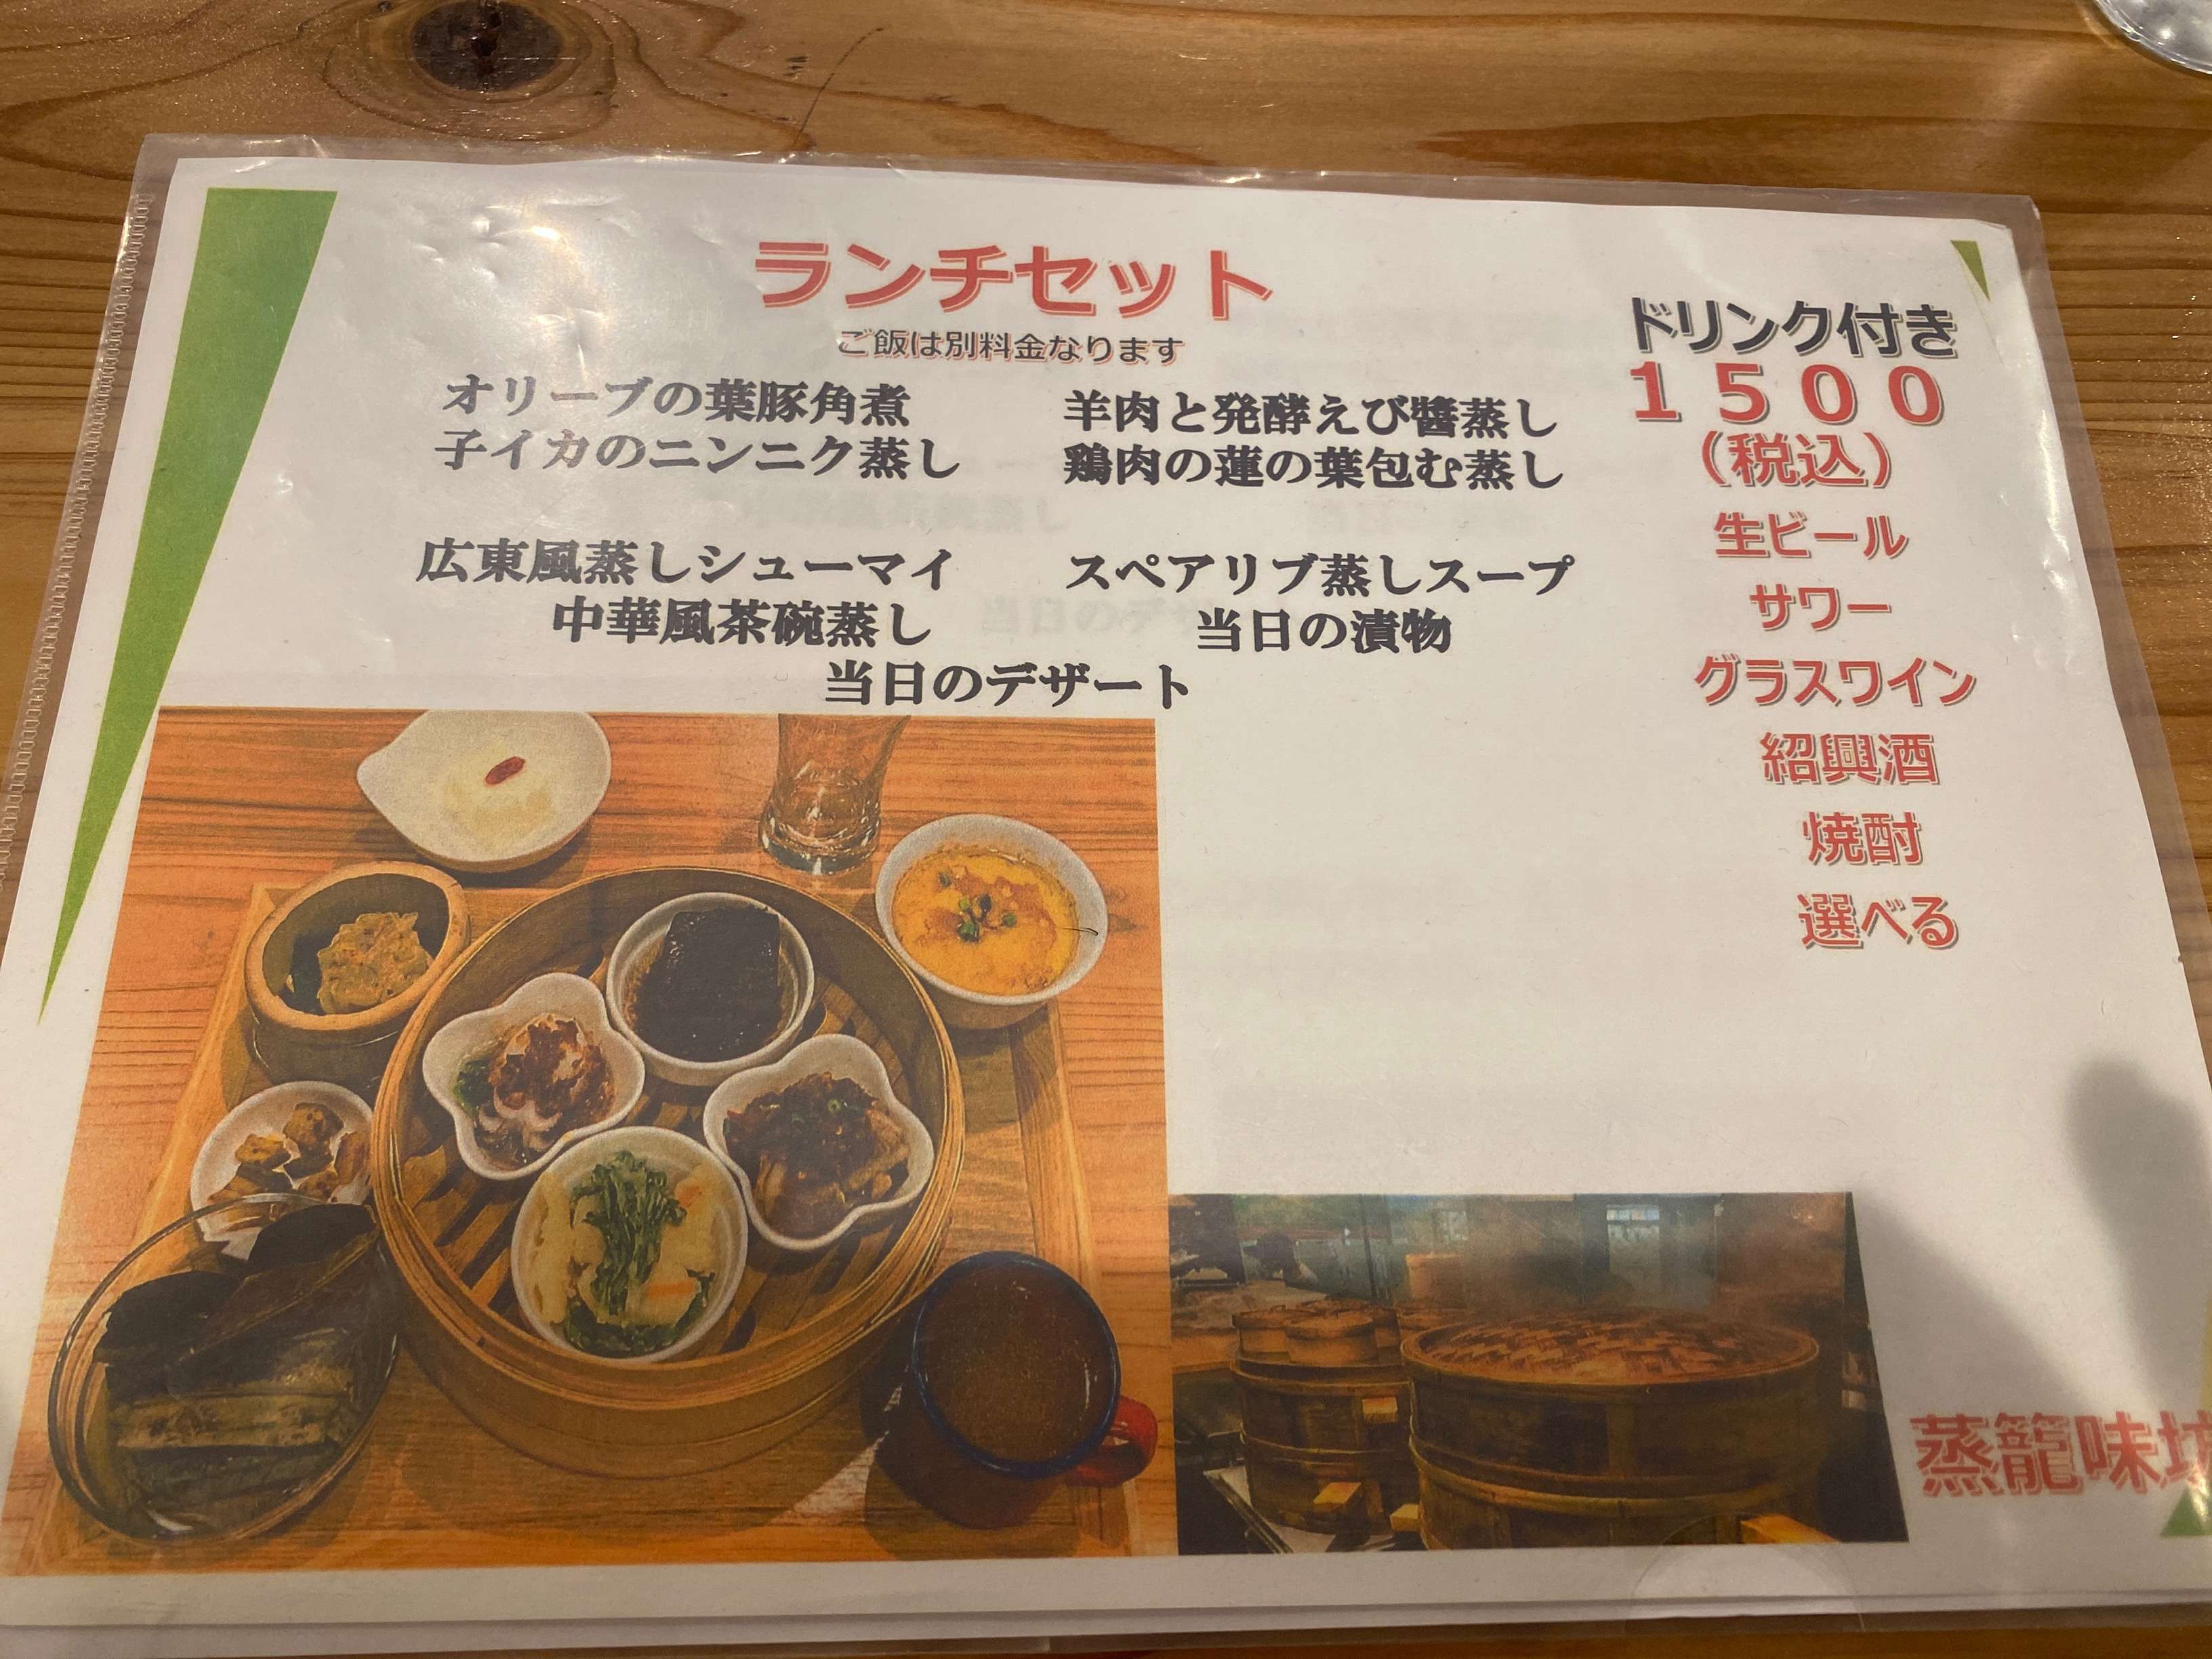 ランチセット
ご飯は別料金なります
オリーブの葉豚角煮
羊肉と発酵えび醬蒸し
子イカのニンニク蒸し
鶏肉の蓮の葉包む蒸し
広東風蒸しシューマイ
スペアリブ蒸しスープ
中華風茶碗蒸し
当日の漬物
当日のデザート
ドリンク付き
1500
(税込)
生ビール
サワー
グラスワイン
紹興酒
焼酎
選べる
蒸籠味坊